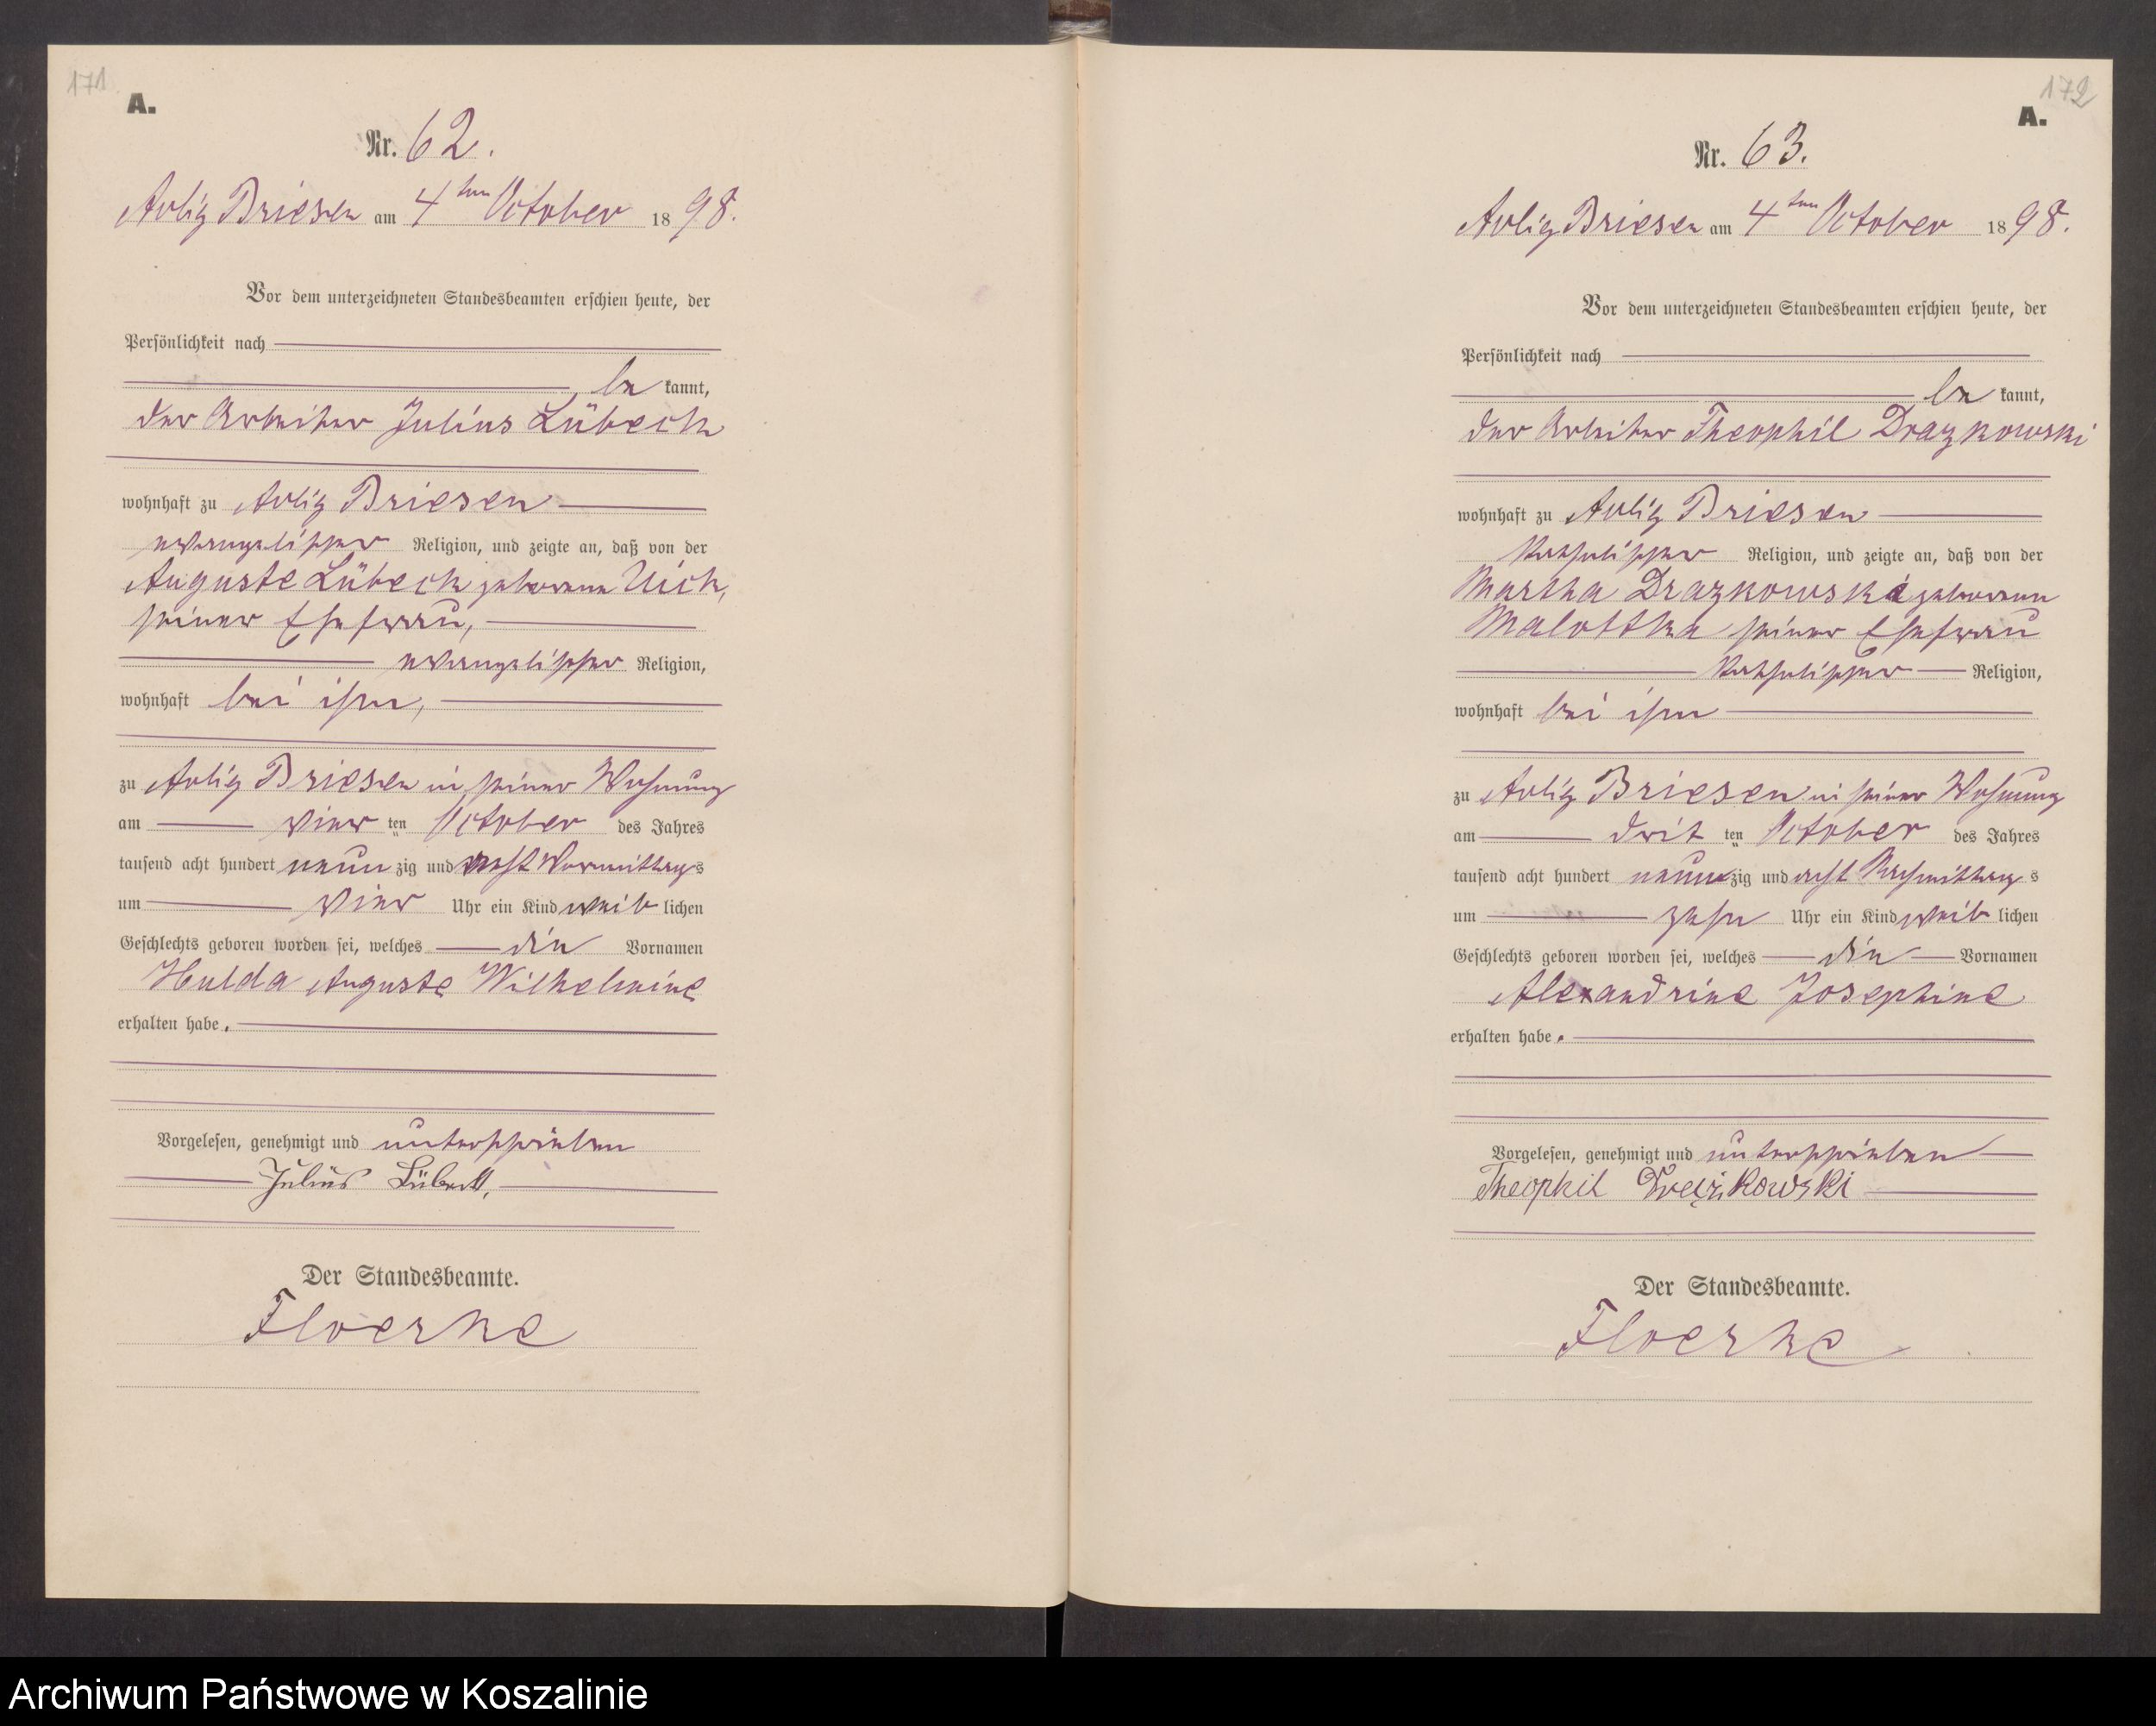 171
A.
Nr. 62.
Adlig Briesen am 4ten October 1898.
Vor dem unterzeichneten Standesbeamten erschien heute, der
Persönlichkeit nach
be kannt,
der Arbeiter Julius Lübeck
wohnhaft zu Adlig Briesen
evangelischer Religion, und zeigte an, daß von der
Auguste Lübeck geborene Uick,
seiner Ehefrau,
evangelischer Religion,
wohnhaft bei ihm,
zu Adlig Briesen in seiner Wohnung
am vier ten October des Jahres
tausend acht hundert neun zig und acht Vormittags
um vier Uhr ein Kind weib lichen
Geschlechts geboren worden sei, welches die Vornamen
Hulda Auguste Wilhelmine
erhalten habe.
Vorgelesen, genehmigt und unterschrieben
Julius Lübeck,
Der Standesbeamte.
Floerke
172
A.
Nr. 63.
Adlig Briesen am 4ten October 1898.
Vor dem unterzeichneten Standesbeamten erschien heute, der
Persönlichkeit nach
be kannt,
der Arbeiter Theophil Drazkowski
wohnhaft zu Adlig Briesen
katholischer Religion, und zeigte an, daß von der
Martha Drazkowski geborenen
Malottka seiner Ehefrau
katholischer Religion,
wohnhaft bei ihm
zu Adlig Briesen in seiner Wohnung
am drit ten October des Jahres
tausend acht hundert neunzig und acht Nachmittag s
um zehn Uhr ein Kind weib lichen
Geschlechts geboren worden sei, welches die Vornamen
Alexandrine Josephine
erhalten habe.
Vorgelesen, genehmigt und unterschrieben
Theophil
Der Standesbeamte.
Floerke
Archiwum Państwowe w Koszalinie